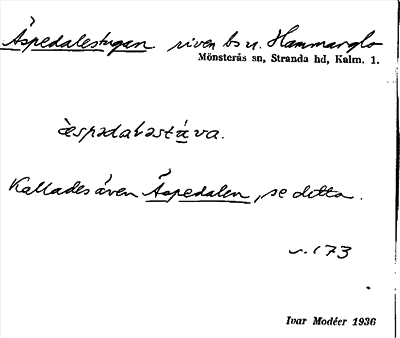 Äspedalestugan riven bs u. Hammarglo
Mönsterås sn, Stranda hd, Kalm. l.
æ̀spədaləst_á_va.
Kallades även Äspedalen, se detta.
s. 173
Ivar Modéer 1936